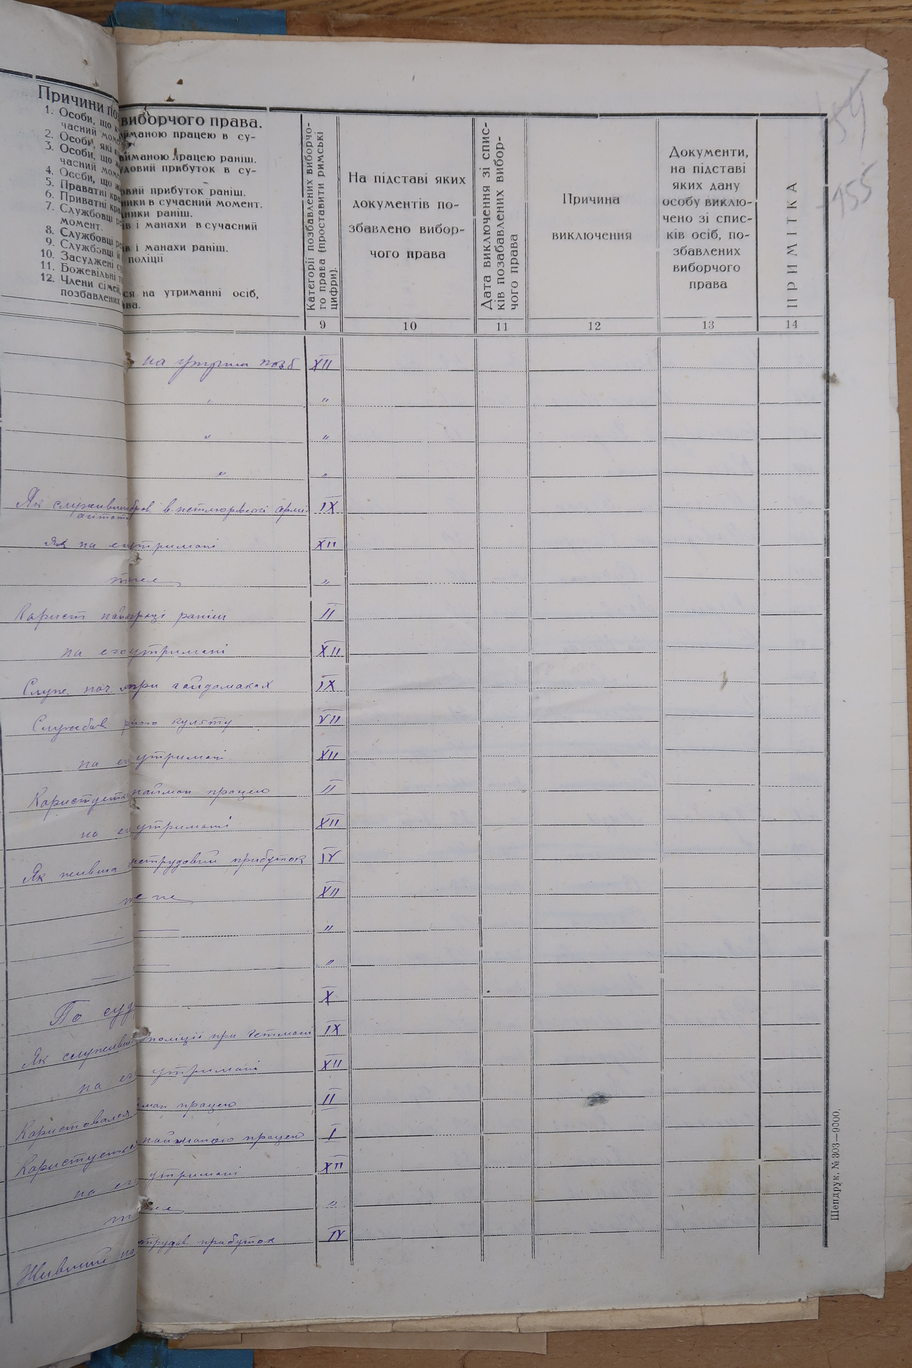 154
155
Причини п
виборчого права.
1. Особи, що
иманою працею в су-
часний мом
2. Особи, які
иманою працею раніш.
3. Особи, що
удовий прибуток в су-
часний мом
4. Особи, що
овий прибуток раніш.
5. Праватні кре
ники в сучасний момент.
6. Приватні кре
ники раніш.
7. Службовці ре
ів і манахи в сучасний
момент.
8. Службовці ре
ів і манахи раніш.
9. Службовці
поліції
10. Засуджені
11. Божевільні
12. Члени сімей
ся на утриманні осіб,
позбавлених
ва.
Категорії позбавлених виборчо-
го права (проставити римські
цифри).
На підставі яких
документів по-
збавлено вибор-
чого права
Дата виключення зі спис-
ків позабавлених вибор-
чого права
Причина
виключення
Документи,
на підставі
яких дану
особу виклю-
чено зі спис-
ків осіб, по-
збавлених
виборчого
права
ПРИМІТКА
9 10 11 12 13 14
на утрим позб XII
" "
" "
" "
Як служивший в петлюрвскі армі IX
Як на его утримані XII
теж "
Корист най праці раніш II
на его утримані XII
Служ нач при гайдамаках IX
Службов реліг культу VII
на его утримані XII
Користует найман працею II
на его утримані XII
Як живша нетрудовий прибуток IV
теж XII
"
"
По суд X
Як служивш поліції при гетмані IX
на его утримані XII
Користовался найман працею II
Користується найманою працею I
на его утримані XII
теж "
Живший на нетрудов прибуток IV
Шендрук. № 303—9000.